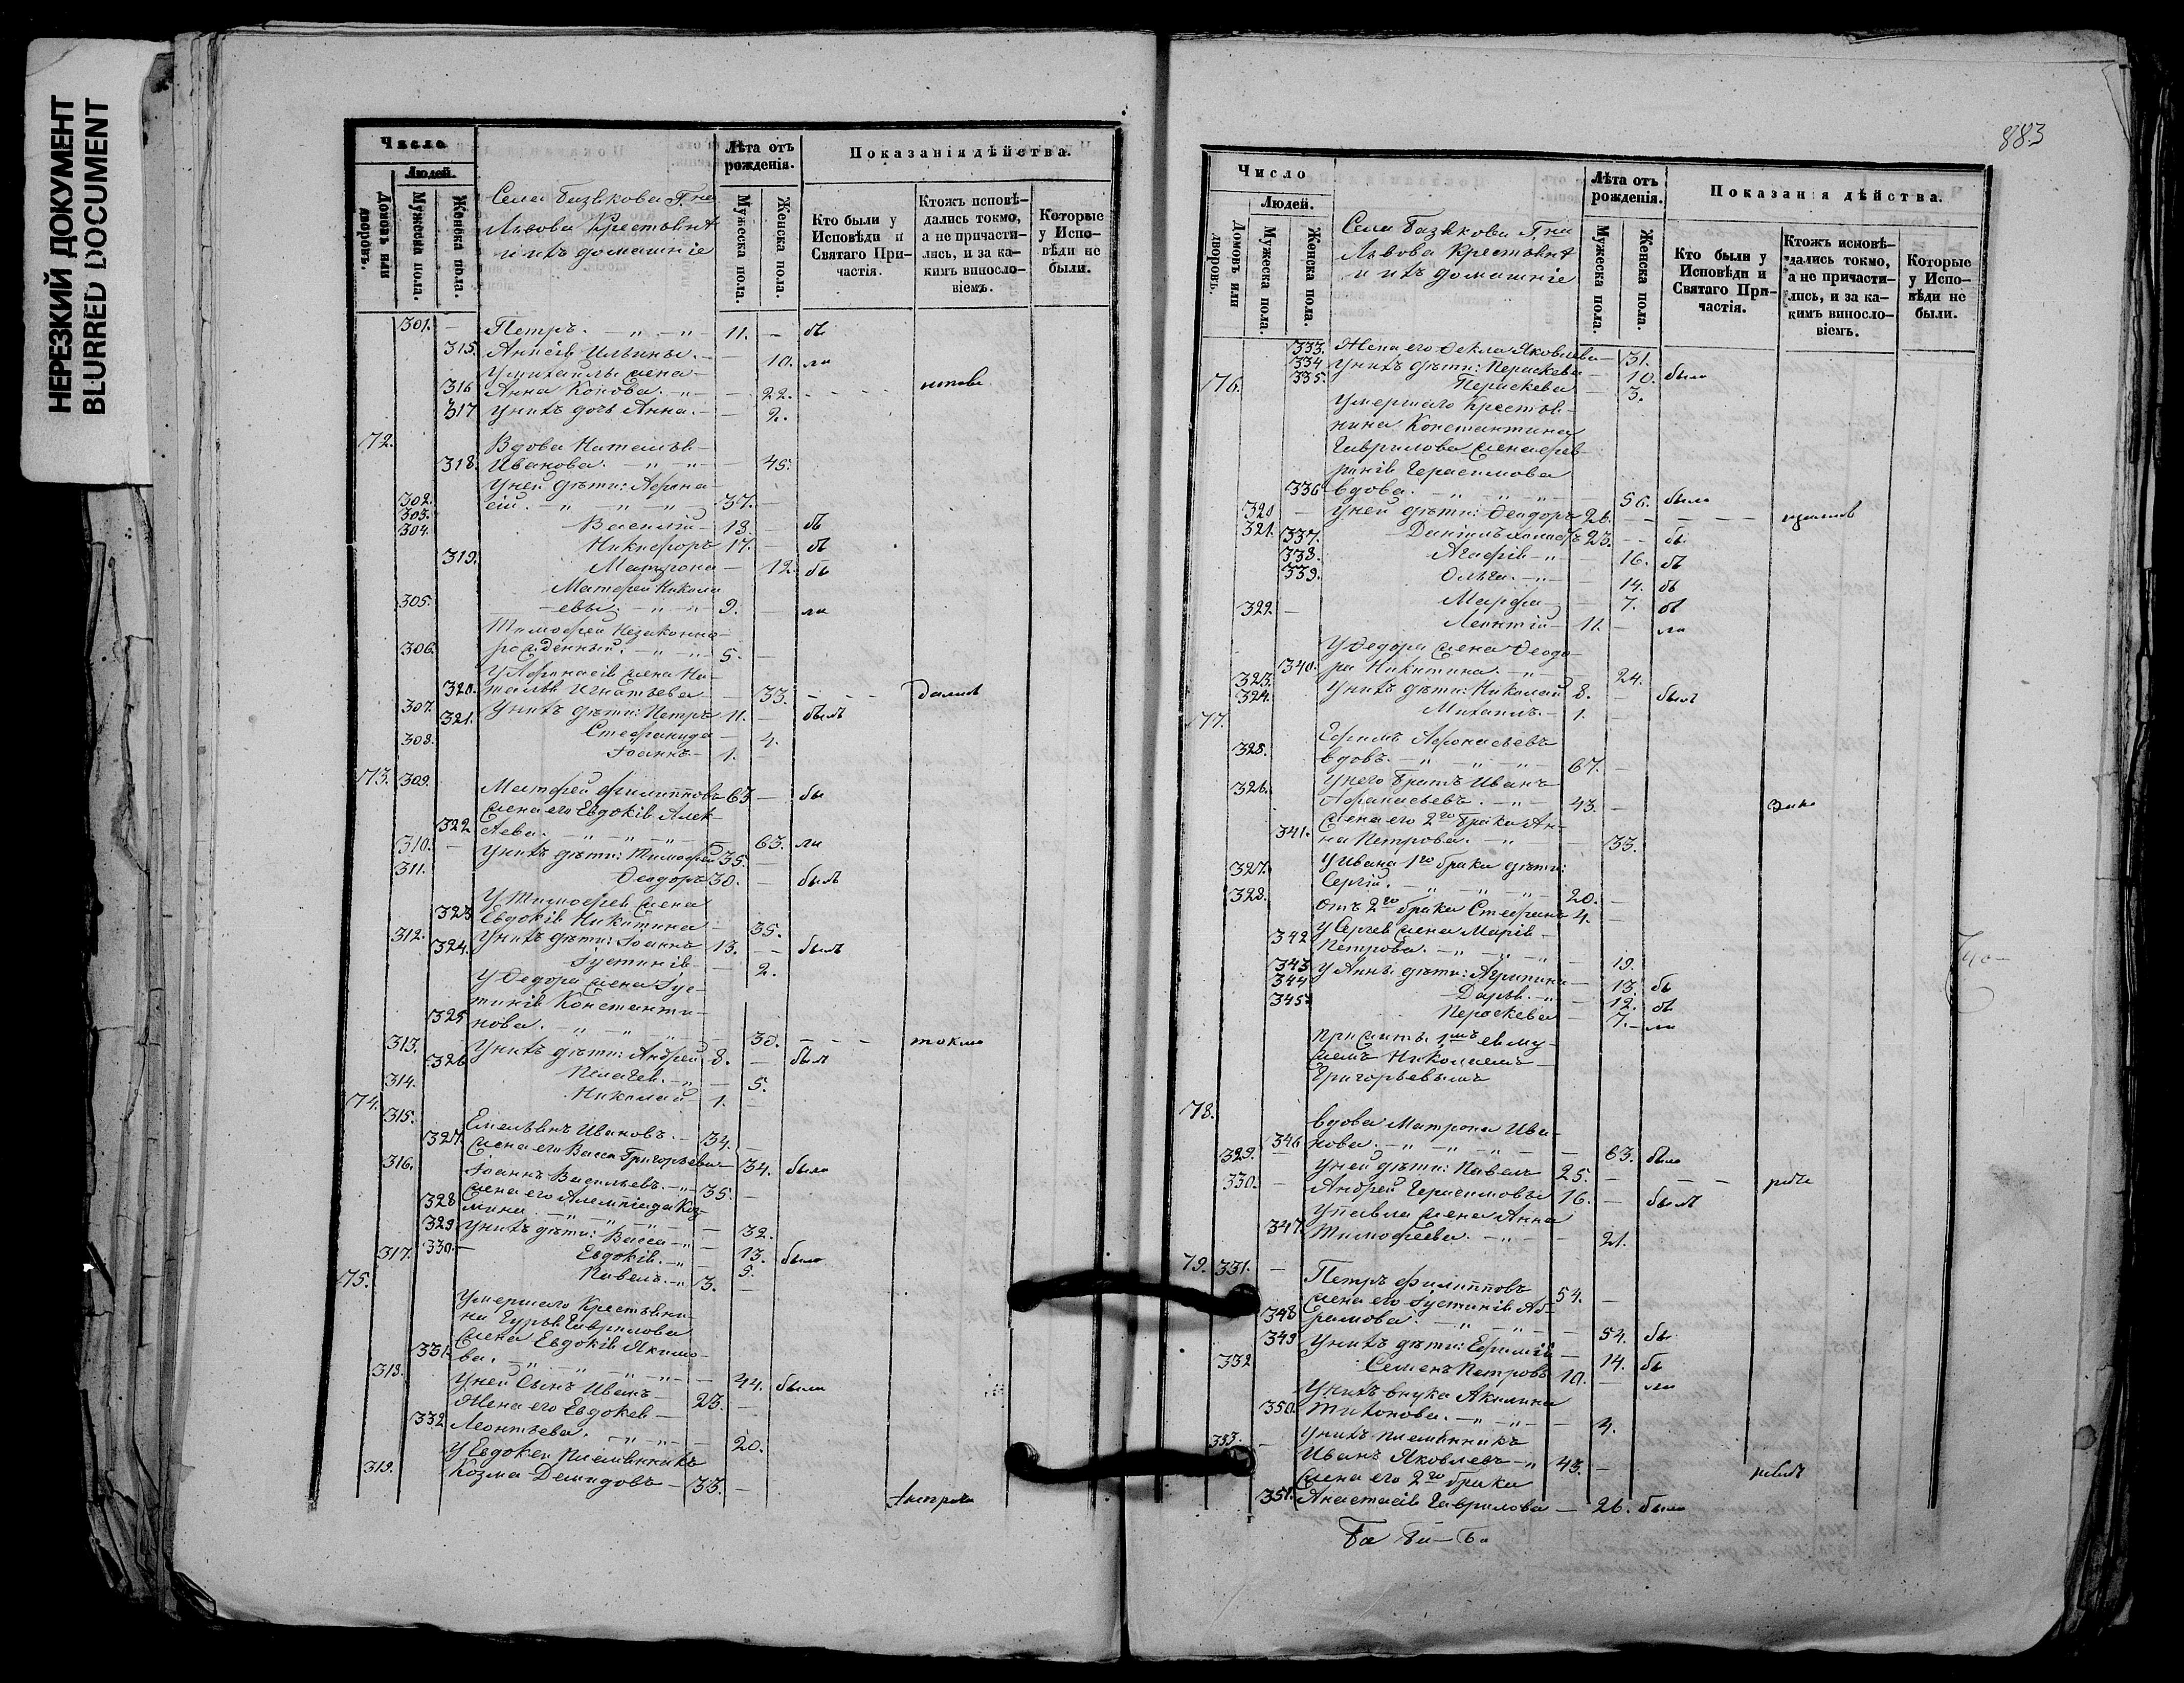 НЕРЕЗКИЙ ДОКУМЕНТ
BLURRED DOCUMENT
Число
Людей.
Домовъ или дворовъ.
Мужеска пола.
Женска пола.
Села Базѣкова Г.на
Львова Крестьянѣ
и ихъ домашніе
Лѣта отъ рожденія.
Мужеска пола.
Женска пола.
Показанія дѣйства.
Кто были у Исповѣди и Святаго Причастія.
Ктожъ исповѣдались токмо, а не причастились, и за какимъ винословіемъ.
Которые у Исповѣди не были.
301. — Петръ. — „ — „ — 11. — бы
315. Анисія Ильины. — — 10. ли
У Михаила жена
316 Анна — „ — — 22. - - -
317 У нихъ дочь Анна. — — 2.
172. Вдова Наталья
318. Иванова. — „ — „ — — 45.
У ней дѣти: Афана
302. сій. — „ — „ — „ 37. —
303. Василій — 18. — бы
304. Никифоръ 17. — бы
319. Матрона — 12. бы
Матфей Никола
305. евы — „ — „ — 9. — ли
Тимофей Незаконно
306. рожденный. — „ — „ — 5. —
У Афанасія жена На
320. талья Игнатьева — 33. - - -
307. У нихъ дѣти: Петръ 11. — былъ
321. Стефанида — 4.
308. Іоаннъ — 1. —
173. 309. Матфей Филипповъ 63 — бы
Жена его Евдокія Алек
322 сѣева. — „ — „ — „ — 63. ли
310. — У нихъ дѣти: Тимофей 35. —
311. Ѳеодоръ 30. — былъ
У Тимофея жена
323 Евдокія Никитина — 35.
312. У нихъ дѣти: Іоаннъ 13. — былъ
324. Іустинія — 2.
У Ѳедора жена Іус
тинія Константи
325 нова. — „ — „ 30. - - - токмо
313. У нихъ дѣти: Андрей 8. — былъ
326 Пелагея. — „ — 5.
314. Николай — 1. —
174. 315. Емельянъ Ивановъ. — 34. —
327. Жена его Васса Григорьева — 34. была
316. Іоаннъ Васильевъ. — „ — 35. —
Жена его Олимпіада Коз
328 мина. — „ — „ — „ — — 32.
329 У нихъ дѣти: Васса — „ — 13. была
330. — Евдокія. — „ — 5.
317. Павелъ. — „ 3. —
175. Умершаго Крестьяни
на Гурья Гаврилова
жена Евдокія Якимо
331. ва. — „ — „ — „ — „ — — 44. была
318. У ней Сынъ Иванъ — 23. —
Жена его Евдокея —
332 Леонтьева. — „ — „ — — 20.
У Евдокеи племянникъ
319. Козма Демидовъ — 33. —
883
Число
Людей.
Домовъ или дворовъ.
Мужеска пола.
Женска пола.
Села Базѣкова Г.на
Львова Крестьянѣ
и ихъ домашніе
Лѣта отъ рожденія.
Мужеска пола.
Женска пола.
Показанія дѣйства.
Кто были у Исповѣди и Святаго Причастія.
Ктожъ исповѣдались токмо, а не причастились, и за какимъ винословіемъ.
Которые у Исповѣди не были.
333. Жена его Ѳекла Яковлева — 31.
334 У нихъ дѣти: Параскева — 10. была
335. Параскева — 3.
176. Умершаго Крестья
нина Константина
Гаврилова жена
Герасимова
336 вдова. — „ — „ — „ — — 56. была
320 — У ней дѣти: Ѳеодоръ 26. — - - -
321. Даніилъ холостъ 23. — бы
337. Агафія — „ — 16. бы
338. Ольга. — „ — — 14. бы
339. Марфа — 7. бы
322. — Леонтій — 11. — ли
У Ѳедора жена Ѳеодо
340. ра Никитина. — „ — 24.
323. У нихъ дѣти: Николай 8. — былъ
324. Михаилъ. — 1. —
177. Ефимъ Афонасьевъ
325. вдовъ. — „ — „ — „ — 67. —
У него братъ Иванъ
326. Афанасьевъ. — „ — 43. —
Жена его 2го брака Ан
341. на Петрова. — „ — — 33.
У Ивана 1го брака дѣти:
327. Сергій. — „ — „ — „ — 20. —
328. Отъ 2го брака Стефанъ 4. —
У Сергея жена Марія
342 Петрова. — „ — „ — „ — 19.
343 У Анны дѣти: Агрипина — 13. бы
344 Дарья. — „ — 12. бы
345. Параскева — 7. — ли
Николаемъ
Григорьевымъ
178. вдова Матрона Ива
346 нова. — „ — „ — „ — — 63. была
329. — У ней дѣти: Павелъ 25. — - - -
330. — Андрей Герасимовы 16. — былъ
У Павла жена Анна
347. Тимофеева. — „ — „ — 21.
179. 331. — Петръ Филипповъ 54. —
Жена его Іустинія Аб
348 рамова. — „ — „ — — 54. бы
349 У нихъ дѣти: — 14. бы
332 Семенъ Петровъ 10. — ли
У нихъ внука Акилина
350. Тихонова. — „ — „ — — 4.
У нихъ племянникъ
333. — Иванъ Яковлевъ — „ 43. —
Жена его 2го брака
351. Анастасія Гаврилова — 26. была